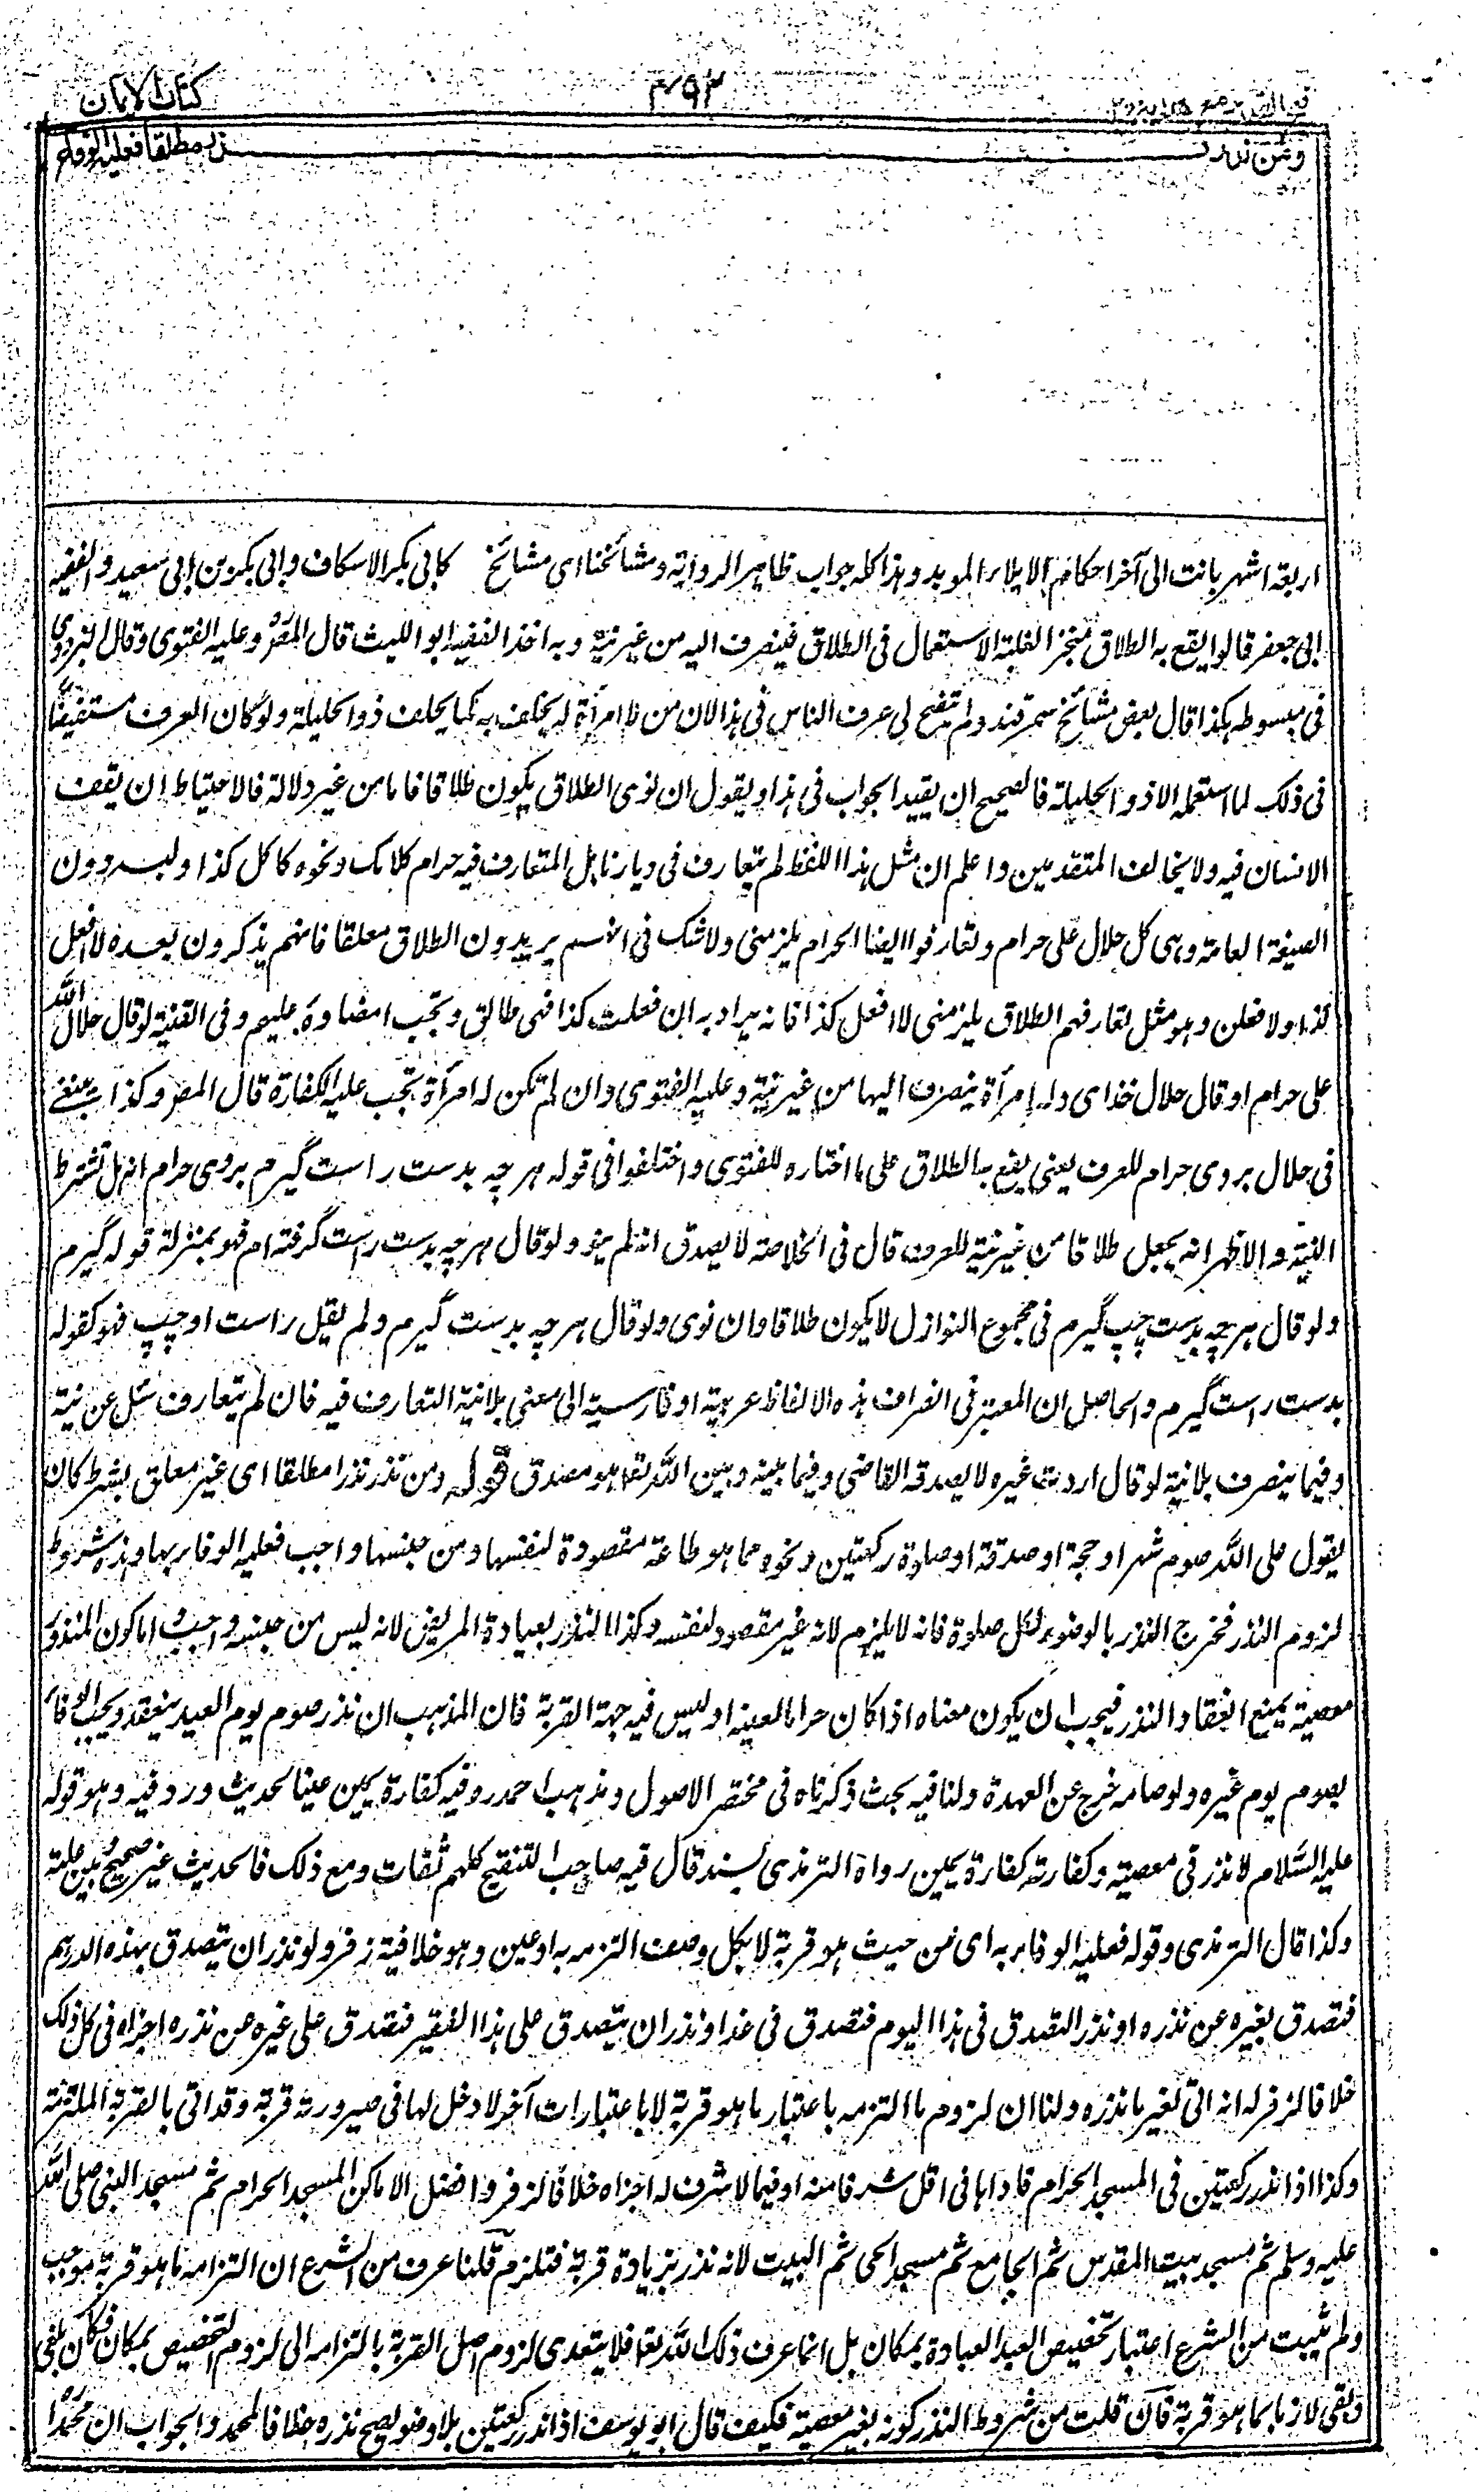 كتاب الايمان
۴۹۳
ومن نذر نذرا مطلقا فعليه الوفاء
اربعة اشهر بانت الى آخر احكام الايلاء المؤبد وهذا كله جواب ظاهر الرواية ومشائخنا اى مشائخ كابى بكر الاسكاف وابى بكر بن ابى سعيد والفقيه
ابى جعفر قالوا يقع به الطلاق منجز الغلبة الاستعمال فى الطلاق فينصرف اليه من غير نية وبه اخذ الفقيه ابو الليث قال المصر وعليه الفتوى وقال البزدوى
فى مبسوطه هكذا قال بعض مشائخ سمرقند ولم يتضح لى عرف الناس فى هذا لان من لا امرأة له يحلف به كما يحلف ذو الحليلة ولو كان العرف مستفيضا
فى ذلك لما استعمله الا ذو الحليلة فالصحيح ان يقيد الجواب فى هذا ويقول ان نوى الطلاق يكون طلاقا فاما من غير دلالة فالاحتياط ان يقف
الانسان فيه ولا يخالف المتقدمين واعلم ان مثل هذا اللفظ لم يتعارف فى ديارنا بل المتعارف فيه حرام كلامك ونحوه كاكل كذا ولبسه دون
الصيغة العامة وهى كل حلال على حرام وتعارفوا ايضا الحرام يلزمنى ولا شك فى انهم يريدون الطلاق معلقا فانهم يذكرون بعده لا افعل
كذا ولا فعلن وهو مثل تعارفهم الطلاق يلزمنى لا افعل كذا فانه يراد به ان فعلت كذا فهى طالق ويجب امضاؤه عليهم وفى القنية لو قال حلال الله
على حرام او قال حلال خداى وله امرأة ينصرف اليها من غير نية وعليه الفتوى وان لم تكن له امرأة تجب عليه الكفارة قال المصر وكذا ينبغى
فى حلال بروى حرام للعرف يعنى يقع به الطلاق على ما اختاره للفتوى واختلفوا فى قوله هر چه بدست راست گيرم بروى حرام انه هل تشترط
النية والاظهر انه يجعل طلاقا من غير نية للعرف قال فى الخلاصة لا يصدق انه لم ينو ولو قال هر چه بدست راست گرفته ام فهو بمنزلة قوله گيرم
ولو قال هر چه بدست چپ گيرم فى مجموع النوازل لا يكون طلاقا وان نوى ولو قال هر چه بدست گيرم ولم يقل راست او چپ فهو كقوله
بدست راست گيرم والحاصل ان المعتبر فى انصراف هذه الالفاظ عربية او فارسية الى معنى بلا نية التعارف فيه فان لم يتعارف سئل عن نيته
وفيما ينصرف بلا نية لو قال اردت غيره لا يصدقه القاضى وفيما بينه وبين الله تعا هو مصدق قوله ومن نذر نذرا مطلقا اى غير معلق بشرط كان
يقول على الله صوم شهر او حجة او صدقة او صلوة ركعتين ونحوه مما هو طاعة مقصودة لنفسها ومن جنسها واجب فعليه الوفاء بها وهذه شروط
لزوم النذر فخرج النذر بالوضوء لكل صلوة فانه لا يلزم لانه غير مقصود لنفسه وكذا النذر بعيادة المريض لانه ليس من جنسه واجب واما كون المنذور
معصية يمنع انعقاد النذر فيجب ان يكون معناه اذا كان حراما لعينه او ليس فيه جهة القربة فان المذهب ان نذر صوم يوم العيد ينعقد ويجب الوفاء
بصوم يوم غيره ولو صامه خرج عن العهدة ولنا فيه بحث ذكرناه فى مختصر الاصول ومذهب احمد ره فيه كفارة يمين عينا لحديث ورد فيه وهو قوله
عليه السلام لا نذر فى معصية وكفارته كفارة يمين رواه الترمذى بسند قال فيه صاحب التنقيح كلهم ثقات ومع ذلك فالحديث غير صحيح وبين علته
وكذا قال الترمذى وقوله فعليه الوفاء به اى من حيث هو قربة لا بكل وصف التزمه به او عين وهو خلافية زفر ولو نذر ان يتصدق بهذه الدراهم
فتصدق بغيره عن نذره او نذر التصدق فى هذا اليوم فتصدق فى غدا ونذر ان يتصدق على هذا الفقير فتصدق على غيره عن نذره اجزاه فى كل ذلك
خلافا لزفر له انه اتى بغير ما نذره ولنا ان لزوم ما التزمه باعتبار ما هو قربة لا باعتبارات آخر لا دخل لها فى صيرورته قربة وقد اتى بالقربة الملتزمة
وكذا اذا نذر ركعتين فى المسجد الحرام فاداها فى اقل شرفا منه او فيما لا شرف له اجزاه خلافا لزفر وافضل الاماكن المسجد الحرام ثم مسجد النبى صلى الله
عليه وسلم ثم مسجد بيت المقدس ثم الجامع ثم مسجد الحى ثم البيت لانه نذر بزيادة قربة فتلزم قلنا عرف من الشرع ان التزامه ما هو قربة موجب
ولم يثبت من الشرع اعتبار تخصيص العبد العبادة بمكان بل انما عرف ذلك لله تعا فلا يتعدى لزوم اصل القربة بالتزامه الى لزوم التخصيص بمكان فكان ملغى
وبقى لازما بما هو قربة فان قلت من شروط النذر كونه بغير معصية فكيف قال ابو يوسف اذا نذر ركعتين بلا وضوء يصح نذره خلافا لمحمد والجواب ان محمدا ره